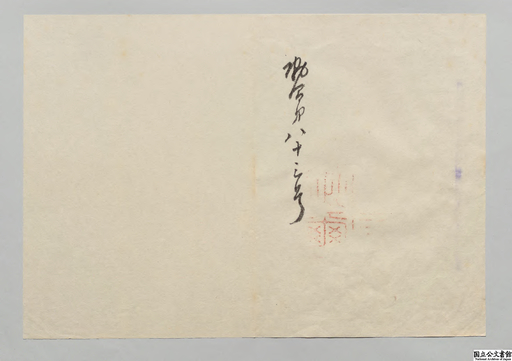 勅令第八十三号
国立公文書館
National Archives of Japan